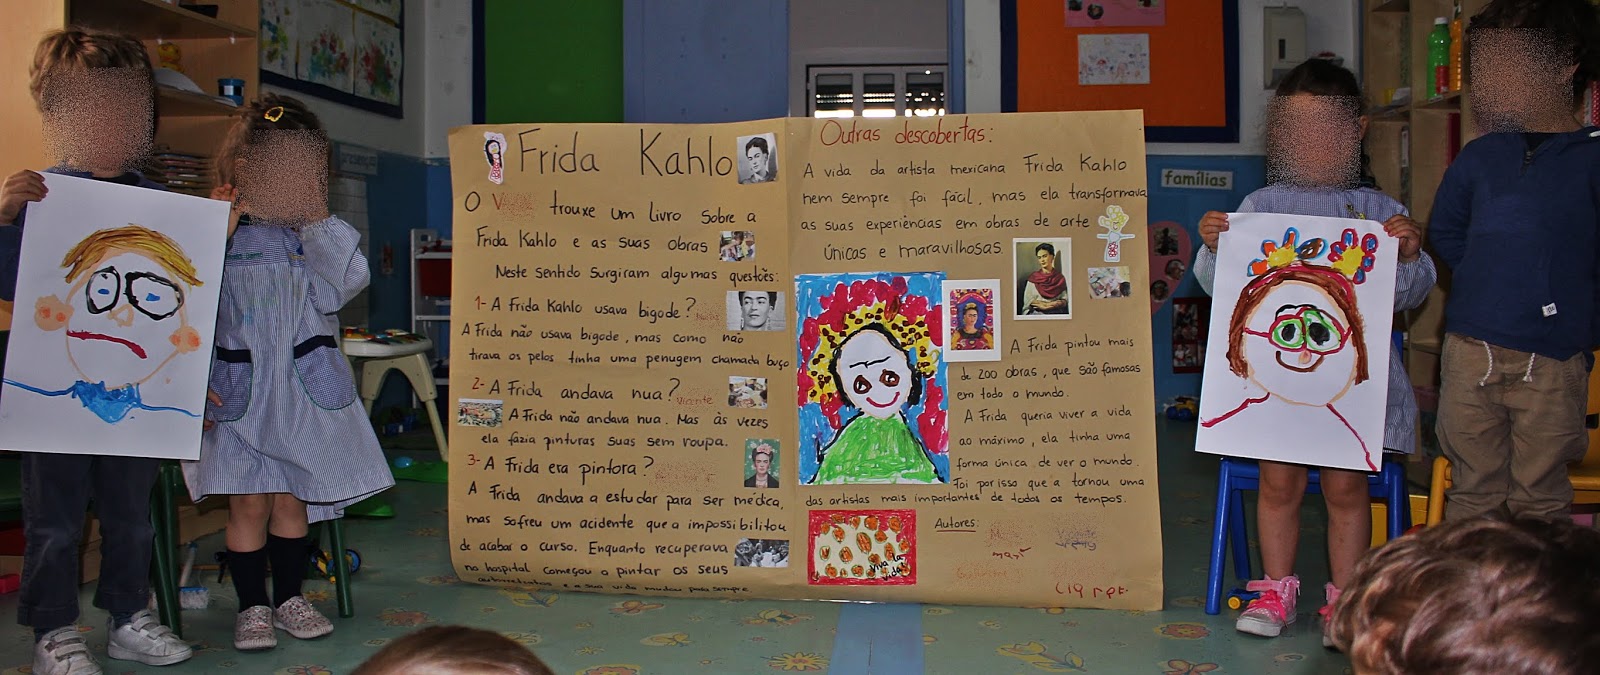 Frida Kahlo
O V trouxe um livro sobre a
Frida Kahlo e as suas obras
Neste sentido surgiram algumas questões:
1- A Frida Kahlo usava bigode?
A Frida não usava bigode, mas como não
tirava os pelos tinha uma penugem chamada buço
2- A Frida andava nua? Vicente
A Frida não andava nua. Mas às vezes
ela fazia pinturas suas sem roupa.
3- A Frida era pintora?
A Frida andava a estudar para ser médica,
mas sofreu um acidente que a impossibilitou
de acabar o curso. Enquanto recuperava
no hospital começou a pintar os seus
autorretratos e a sua vida mudou para sempre
Outras descobertas:
A vida da artista mexicana Frida Kahlo
nem sempre foi fácil, mas ela transformava
as suas experiências em obras de arte
únicas e maravilhosas.
A Frida pintou mais
de 200 obras, que são famosas
em todo o mundo.
A Frida queria viver a vida
ao máximo, ela tinha uma
forma única de ver o mundo.
Foi por isso que a tornou uma
das artistas mais importantes de todos os tempos.
Viva la
vida!
Autores:
Vicente
famílias
presenças